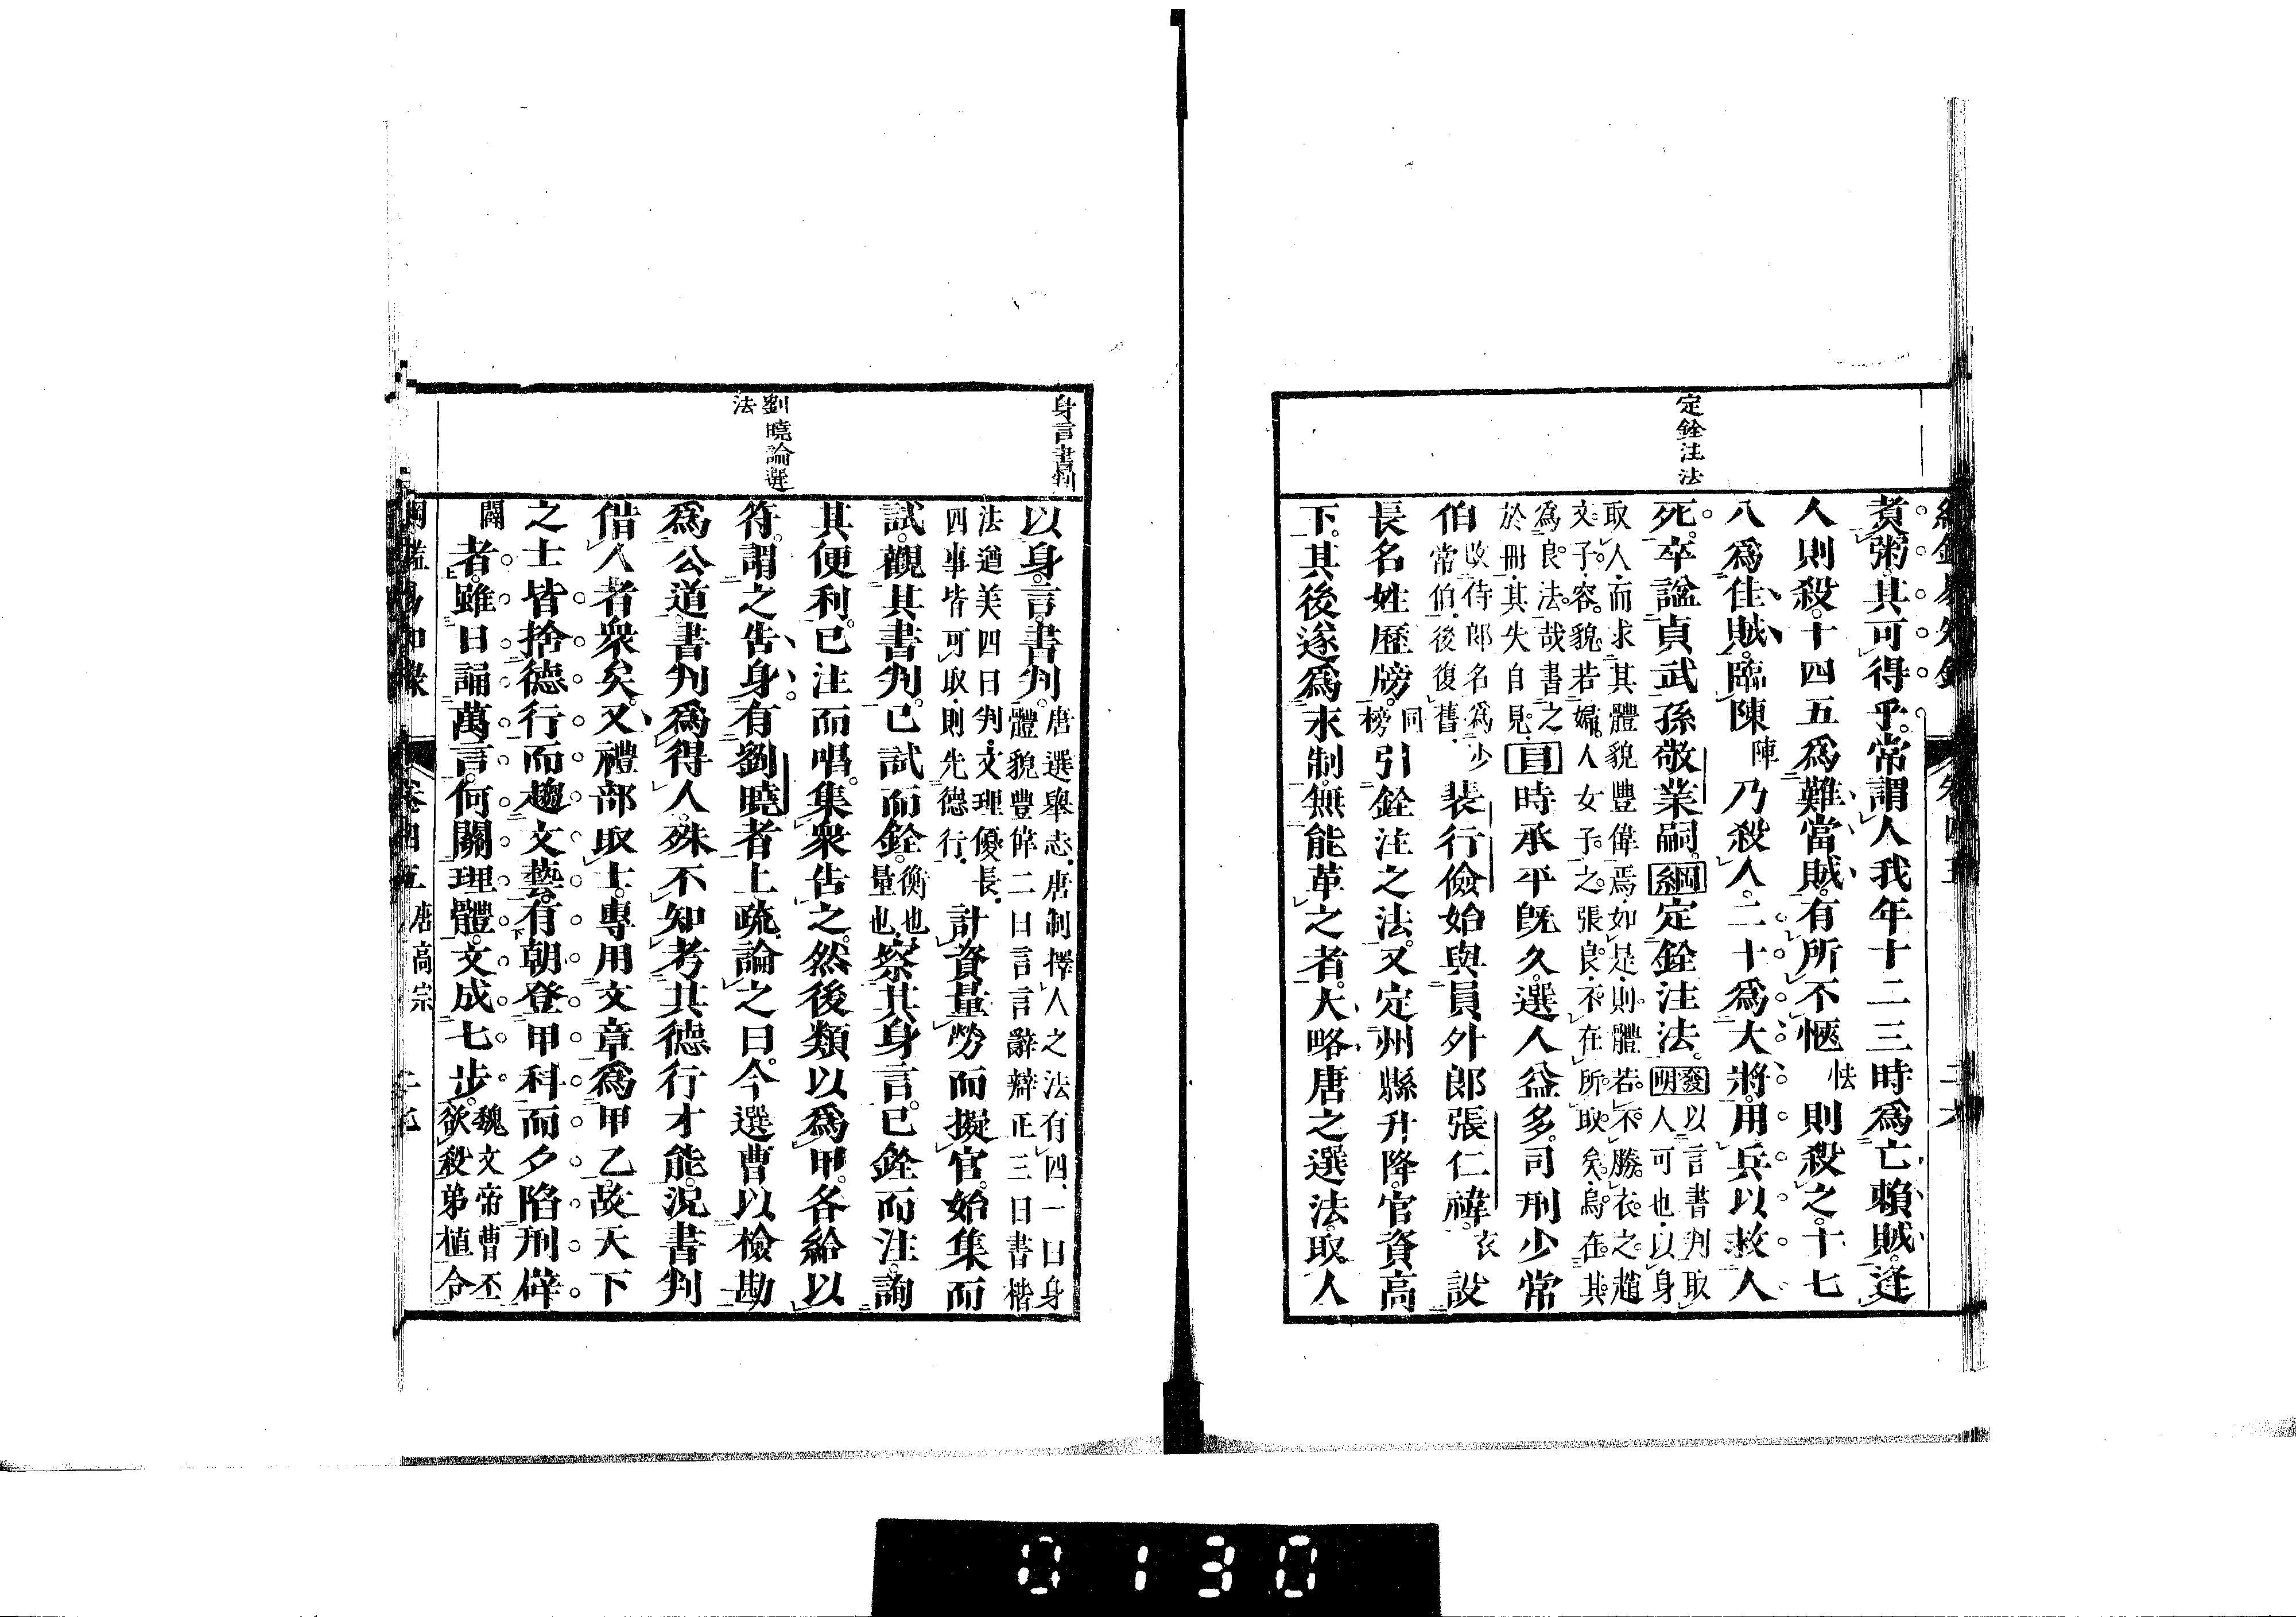 定銓注法
煑粥其可得乎常謂人我年十二三時爲亡賴賊逢
人則殺十四五爲難當賊有所不愜怯則殺之十七
八爲佳賊臨陳陣乃殺人二十爲大將用兵以救人
死卒諡貞武孫敬業嗣綱定銓注法發明以言書判取人可也以身
取人而求其體貌豐偉焉如是則體若不勝衣之趙
文子容貌若婦人女子之張良不在所取矣烏在其
爲良法哉書之
於冊其失自見目時承平旣久選人益多司刑少常
伯改侍郎名爲少常伯後復舊裴行儉始與員外郎張仁褘衣設
長名姓歷牓同榜引銓注之法又定州縣升降官資高
下其後遂爲永制無能革之者大略唐之選法取人
身言書判
劉曉論選
法
以身言書判唐選舉志唐制擇人之法有四一曰身
體貌豐偉二曰言言辭辯正三曰書楷
法遒美四曰判文理優長
四事皆可取則先德行計資量勞而擬官始集而
試觀其書判已試而銓衡也量也察其身言已銓而注詢
其便利已注而唱集衆告之然後類以爲甲各給以
符謂之告身有劉曉者上疏論之曰今選曹以檢勘
爲公道書判爲得人殊不知考其德行才能況書判
借人者衆矣又禮部取士專用文章爲甲乙故天下
之士皆捨德行而趨文藝有朝登甲科而夕陷刑辟
闢者雖日誦萬言何關理體文成七步魏文帝曹丕
欲殺弟植令
綱鑑易知錄 卷四五 唐高宗